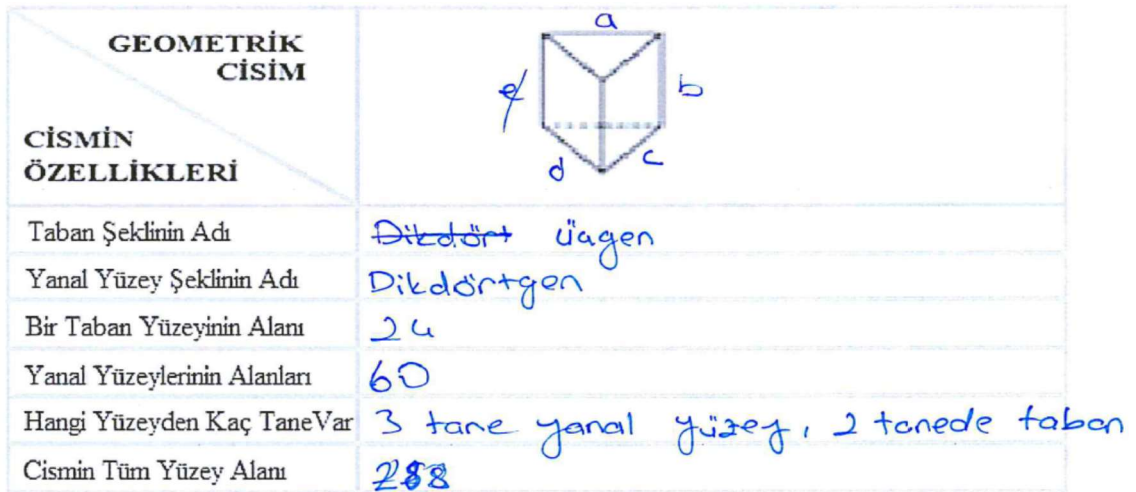 GEOMETRİK
CİSİM
CİSMİN
ÖZELLİKLERİ
a
e
b
d
c
Taban Şeklinin Adı
Dikdört üçgen
Yanal Yüzey Şeklinin Adı
Dikdörtgen
Bir Taban Yüzeyinin Alanı
24
Yanal Yüzeylerinin Alanları
60
Hangi Yüzeyden Kaç TaneVar
3 tane yanal yüzey, 2 tanede taban
Cismin Tüm Yüzey Alanı